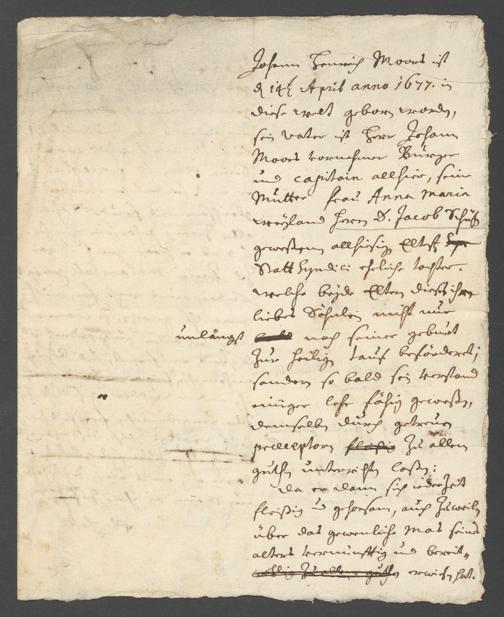 Johann Henrich Moors ist
d. 14t. April anno 1677. in
diese welt geborn worden,
sein vater ist Herr Johann
Moors vornehmer Bürger
und capitain allhier, seine
Mutter frau Anna Maria
weyland Herrn D. Jacob Schütz
gewesenen allhiesig Eltest
Statt Syndici eheliche tochter.
welche beyde Eltern dieses ihr
liebes Söhnlein nicht nur
unlängst nach seiner geburt
Zur heilig tauf befördert;
sondern so bald sein verstand
einiger lehr fähig gewesen,
demselben durch getreue
præceptorn Zu allem
guthen unterrichten lassen:
da er dann sich iederZeit
fleißig u gehorsam, auch Zuweiln
über das gewenliche mas seines
alters vernünfftig und bereit-
erwiesen hat.